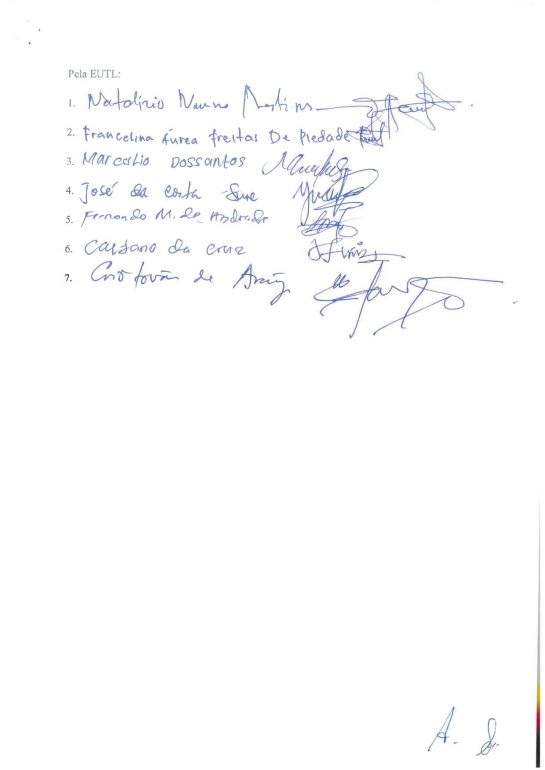 Pela EUTL:
1. Natalino Nunno Martins
2. Francelina Áurea Freitas De Piedade
3. Marcalio Dossantos
4. José da Costa
5. Fernando M. de Andrade
6. Caetano da Cruz
7. Cristovão de
A.